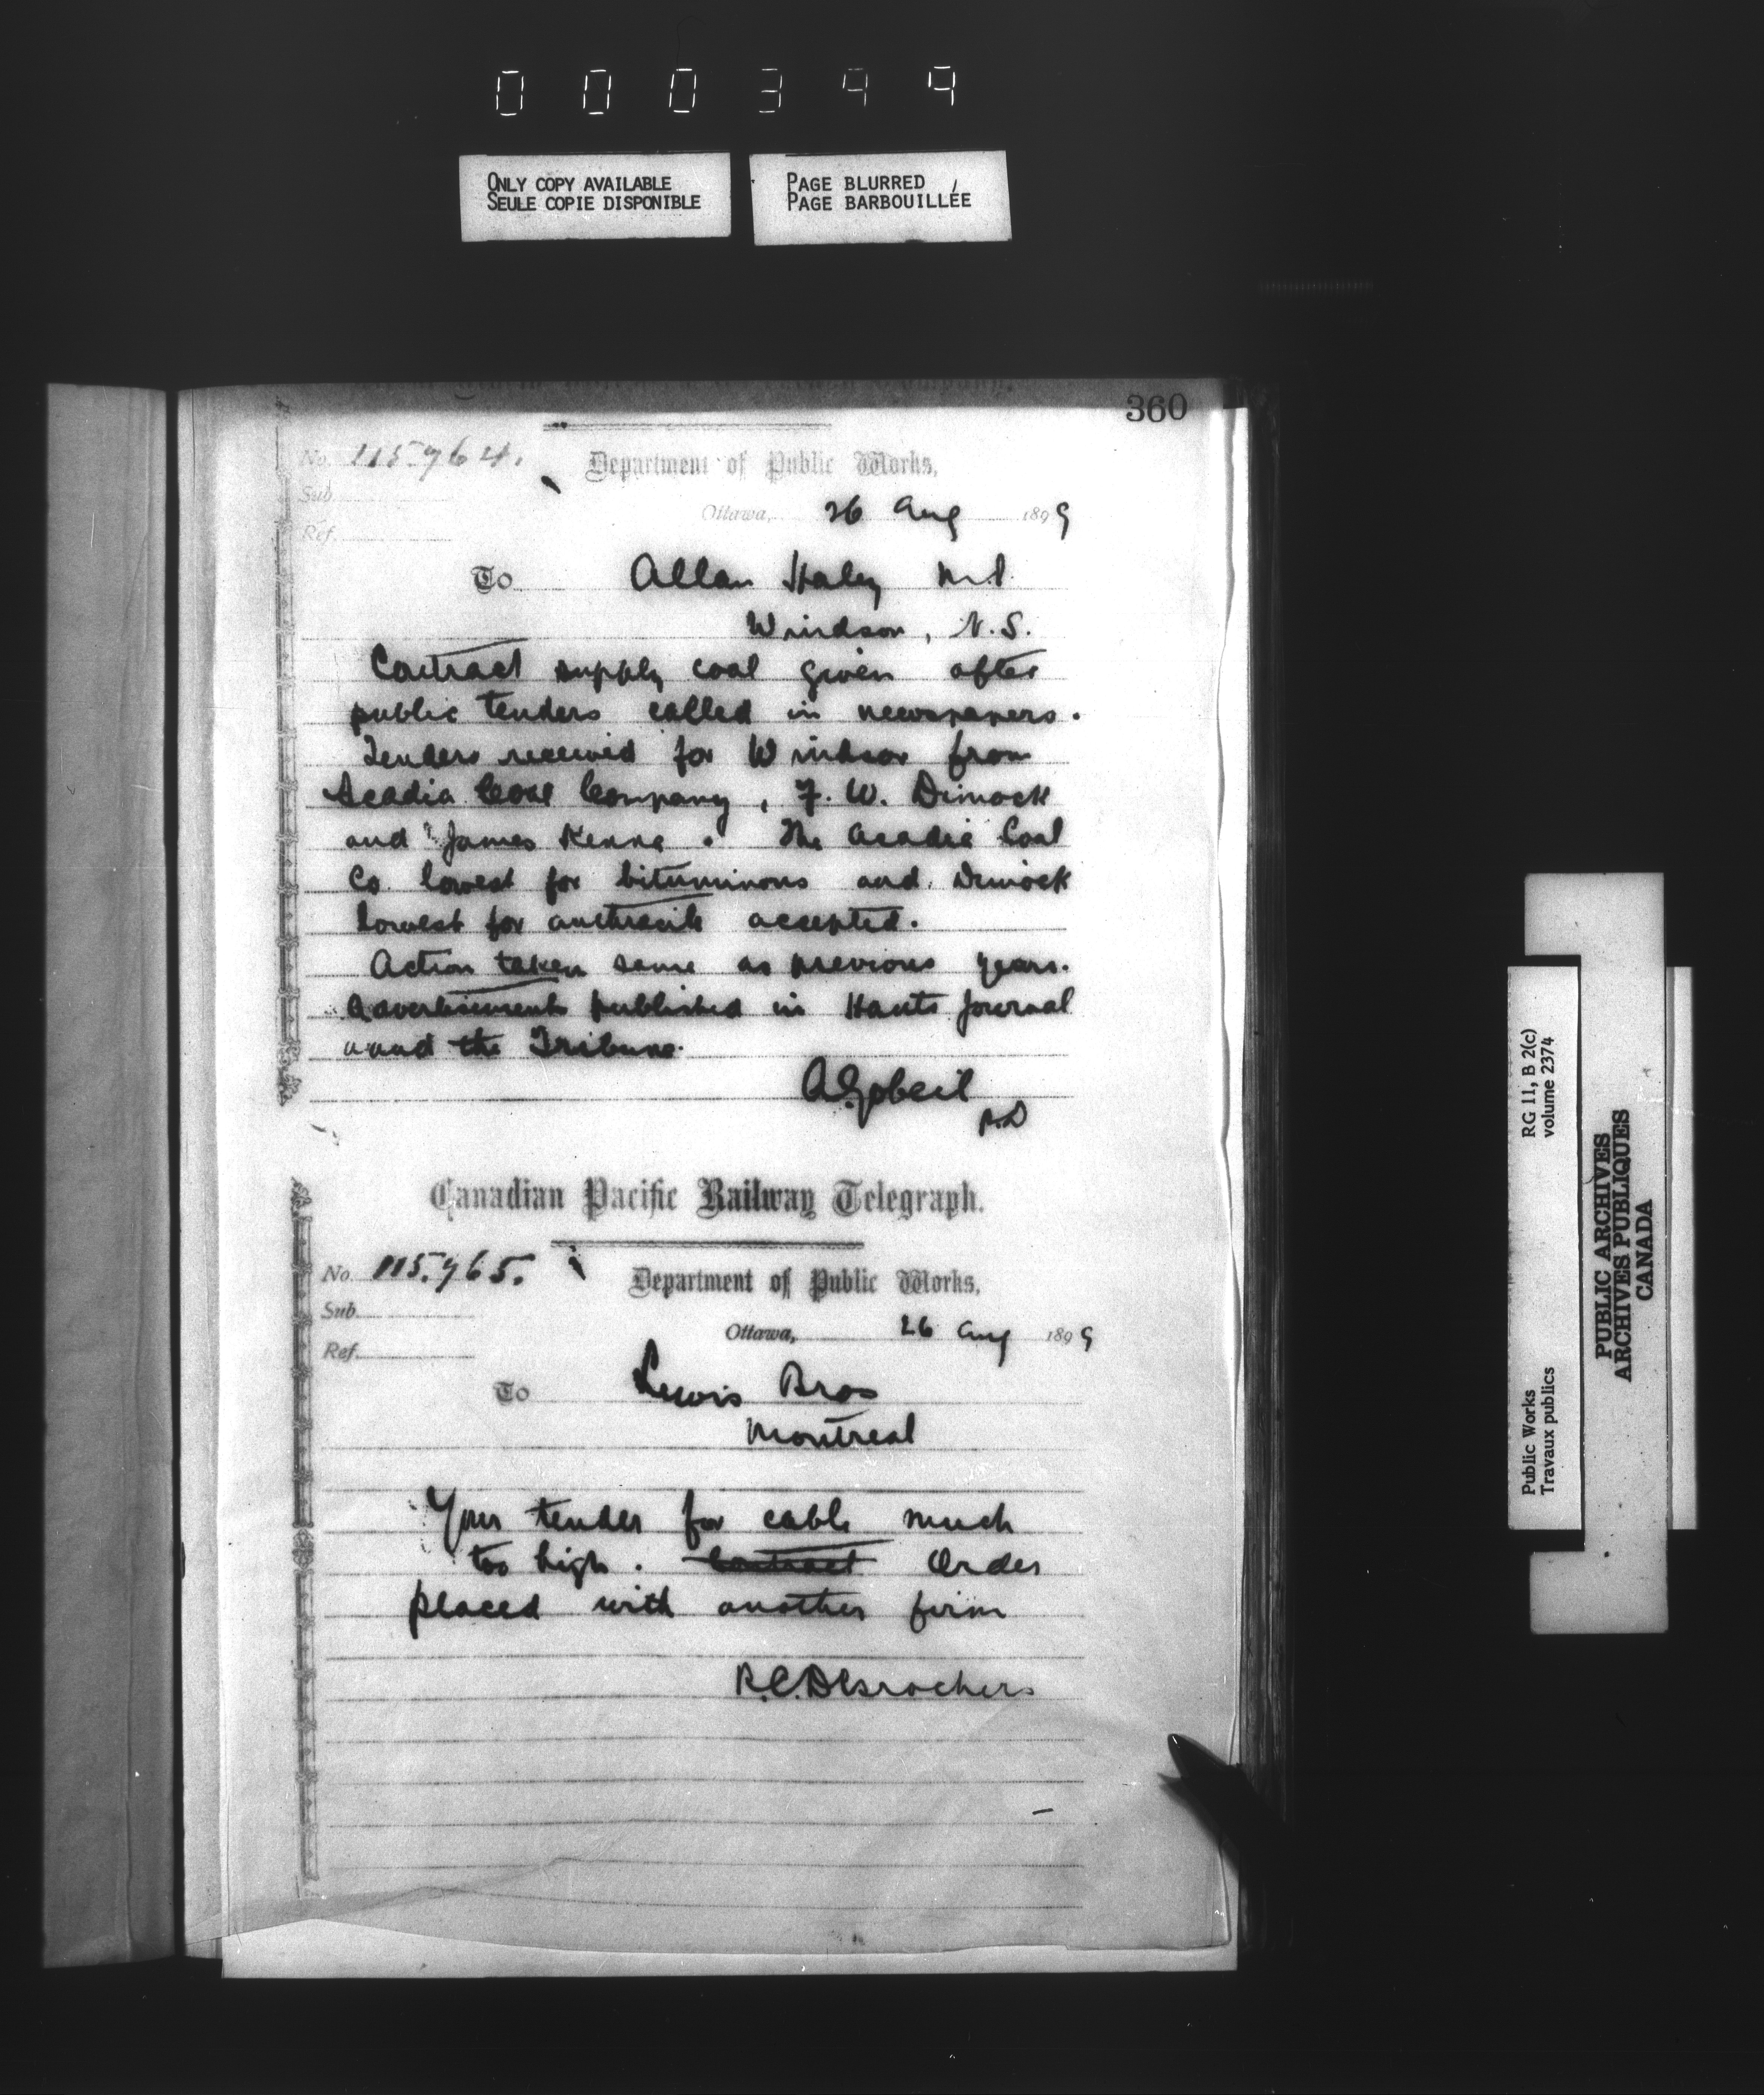 000344
ONLY COPY AVAILABLE
SEULE COPIE DISPONIBLE
PAGE BLURRED
PAGE BARBOUILLÉE
360
No. 115.964.
Department of Public Works,
Sub.
Ottawa, 26 Aug 1899
Ref.
To Allan Haley M.P.
Windsor, N.S.
Contract supply coal given after
public tenders called in newspapers.
Tenders received for Windsor from
Acadia Coal Company, F. W. Dimock
and James Kenna. The Acadia Coal
Co. lowest for bituminous and Dimock
lowest for anthracite accepted.
Action taken same as previous years.
Advertisements published in Hants Journal
and the Tribune.
A. Gobeil
Canadian Pacific Railway Telegraph.
No. 115.965.
Department of Public Works,
Sub.
Ottawa, 26 Aug 1899
Ref.
To Lewis Bros
Montreal
Your tender for cable much
too high. Contract Order
placed with another firm
R.C. Desrochers
Public Works
Travaux publics
RG 11, B 2(c)
volume 2374
PUBLIC ARCHIVES
ARCHIVES PUBLIQUES
CANADA